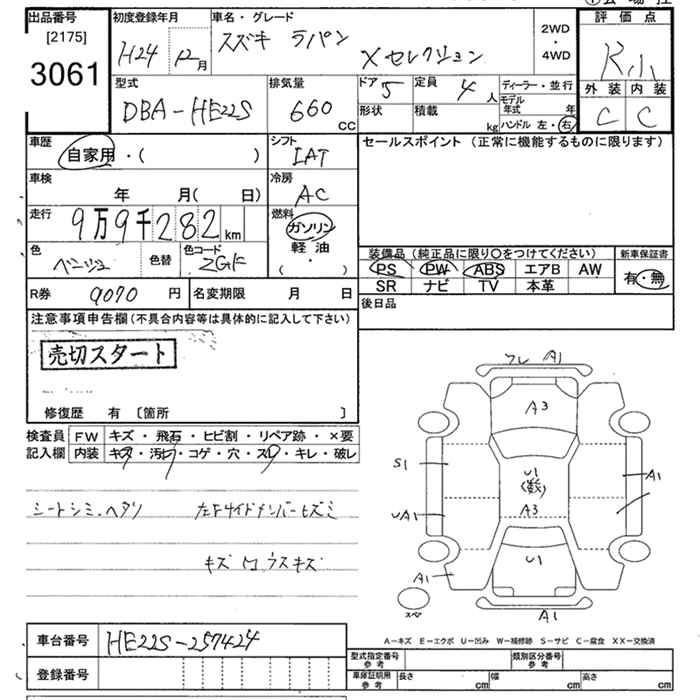 出品番号 初度登録年月 車名・グレード 2WD・4WD 評価点
[2175] H24 12月 スズキ ラパン
3061 Xセレクション R小
型式 排気量 ドア 定員 ディーラー・並行 外装 内装
DBA-HE22S 660CC 5 4人 モデル年式 年 C C
形状 積載 kg ハンドル 左・右
車歴 シフト セールスポイント (正常に機能するものに限ります)
自家用・( ) IAT
車検 冷房
年 月(日) AC
走行 燃料
9万9千282km ガソリン
色 色替 色コード 軽油
ベージュ ZGF (・)
装備品(純正品に限り○をつけてください) 新車保証書
PS PW ABS エアB AW 有・無
SR ナビ TV 本革
R券 9070円 名変期限 月 日 後日品
注意事項申告欄(不具合内容等は具体的に記入して下さい)
売切スタート
修復歴 有 [箇所 ]
検査員 FW キズ・飛石・ヒビ割・リペア跡・×要
記入欄 内装 キズ・汚れ・コゲ・穴・スレ・キレ・破レ
シートシミ、ヘタリ 左Fサイドメンバーヒズミ
キズ
フレ A1
A3
S1 U1 (数) A1
UA1 A3
A1 U1
A1
A-キズ E-エクボ U-凹み W-補修跡 S-サビ C-腐食 XX-交換済
車台番号 HE22S-257424
型式指定番号 参考 類別区分番号 参考
登録番号
車庫証明用 参考 長さ cm 幅 cm 高さ cm